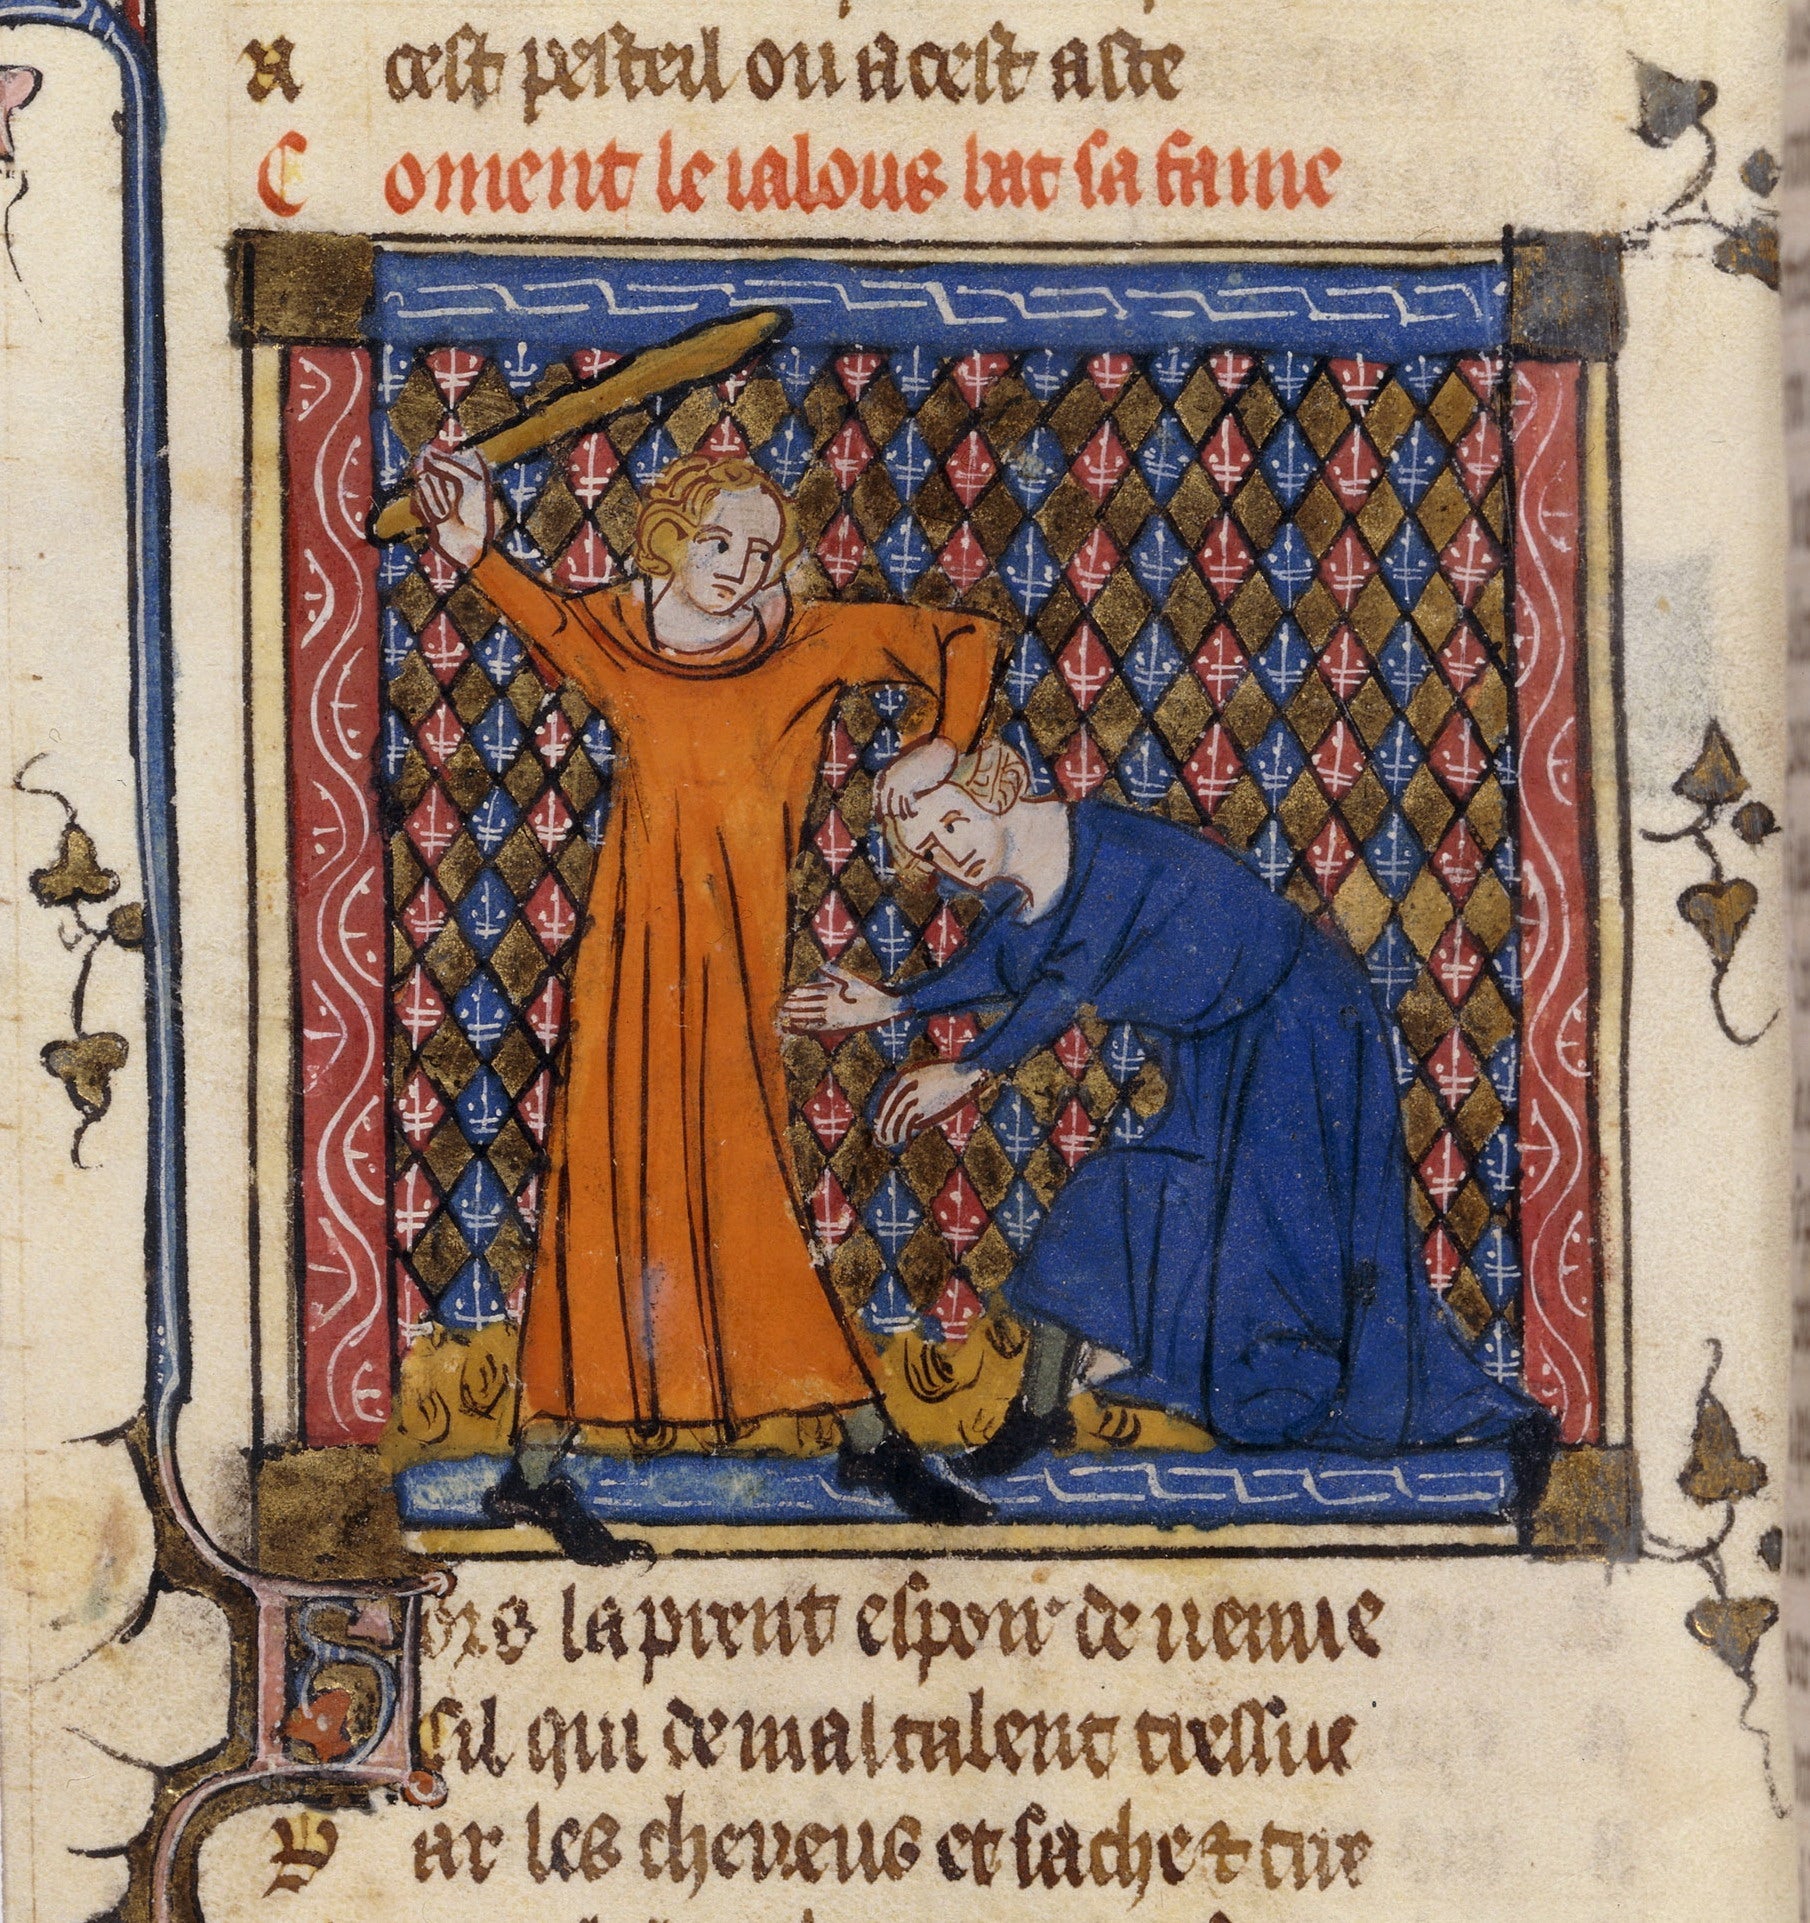 A cest pesteil ou a cest aste
Coment le ialous bat sa fame
Lors la prent espoir de venue
Cil qui de mal talent tressue
Par les cheveus et sache & tire